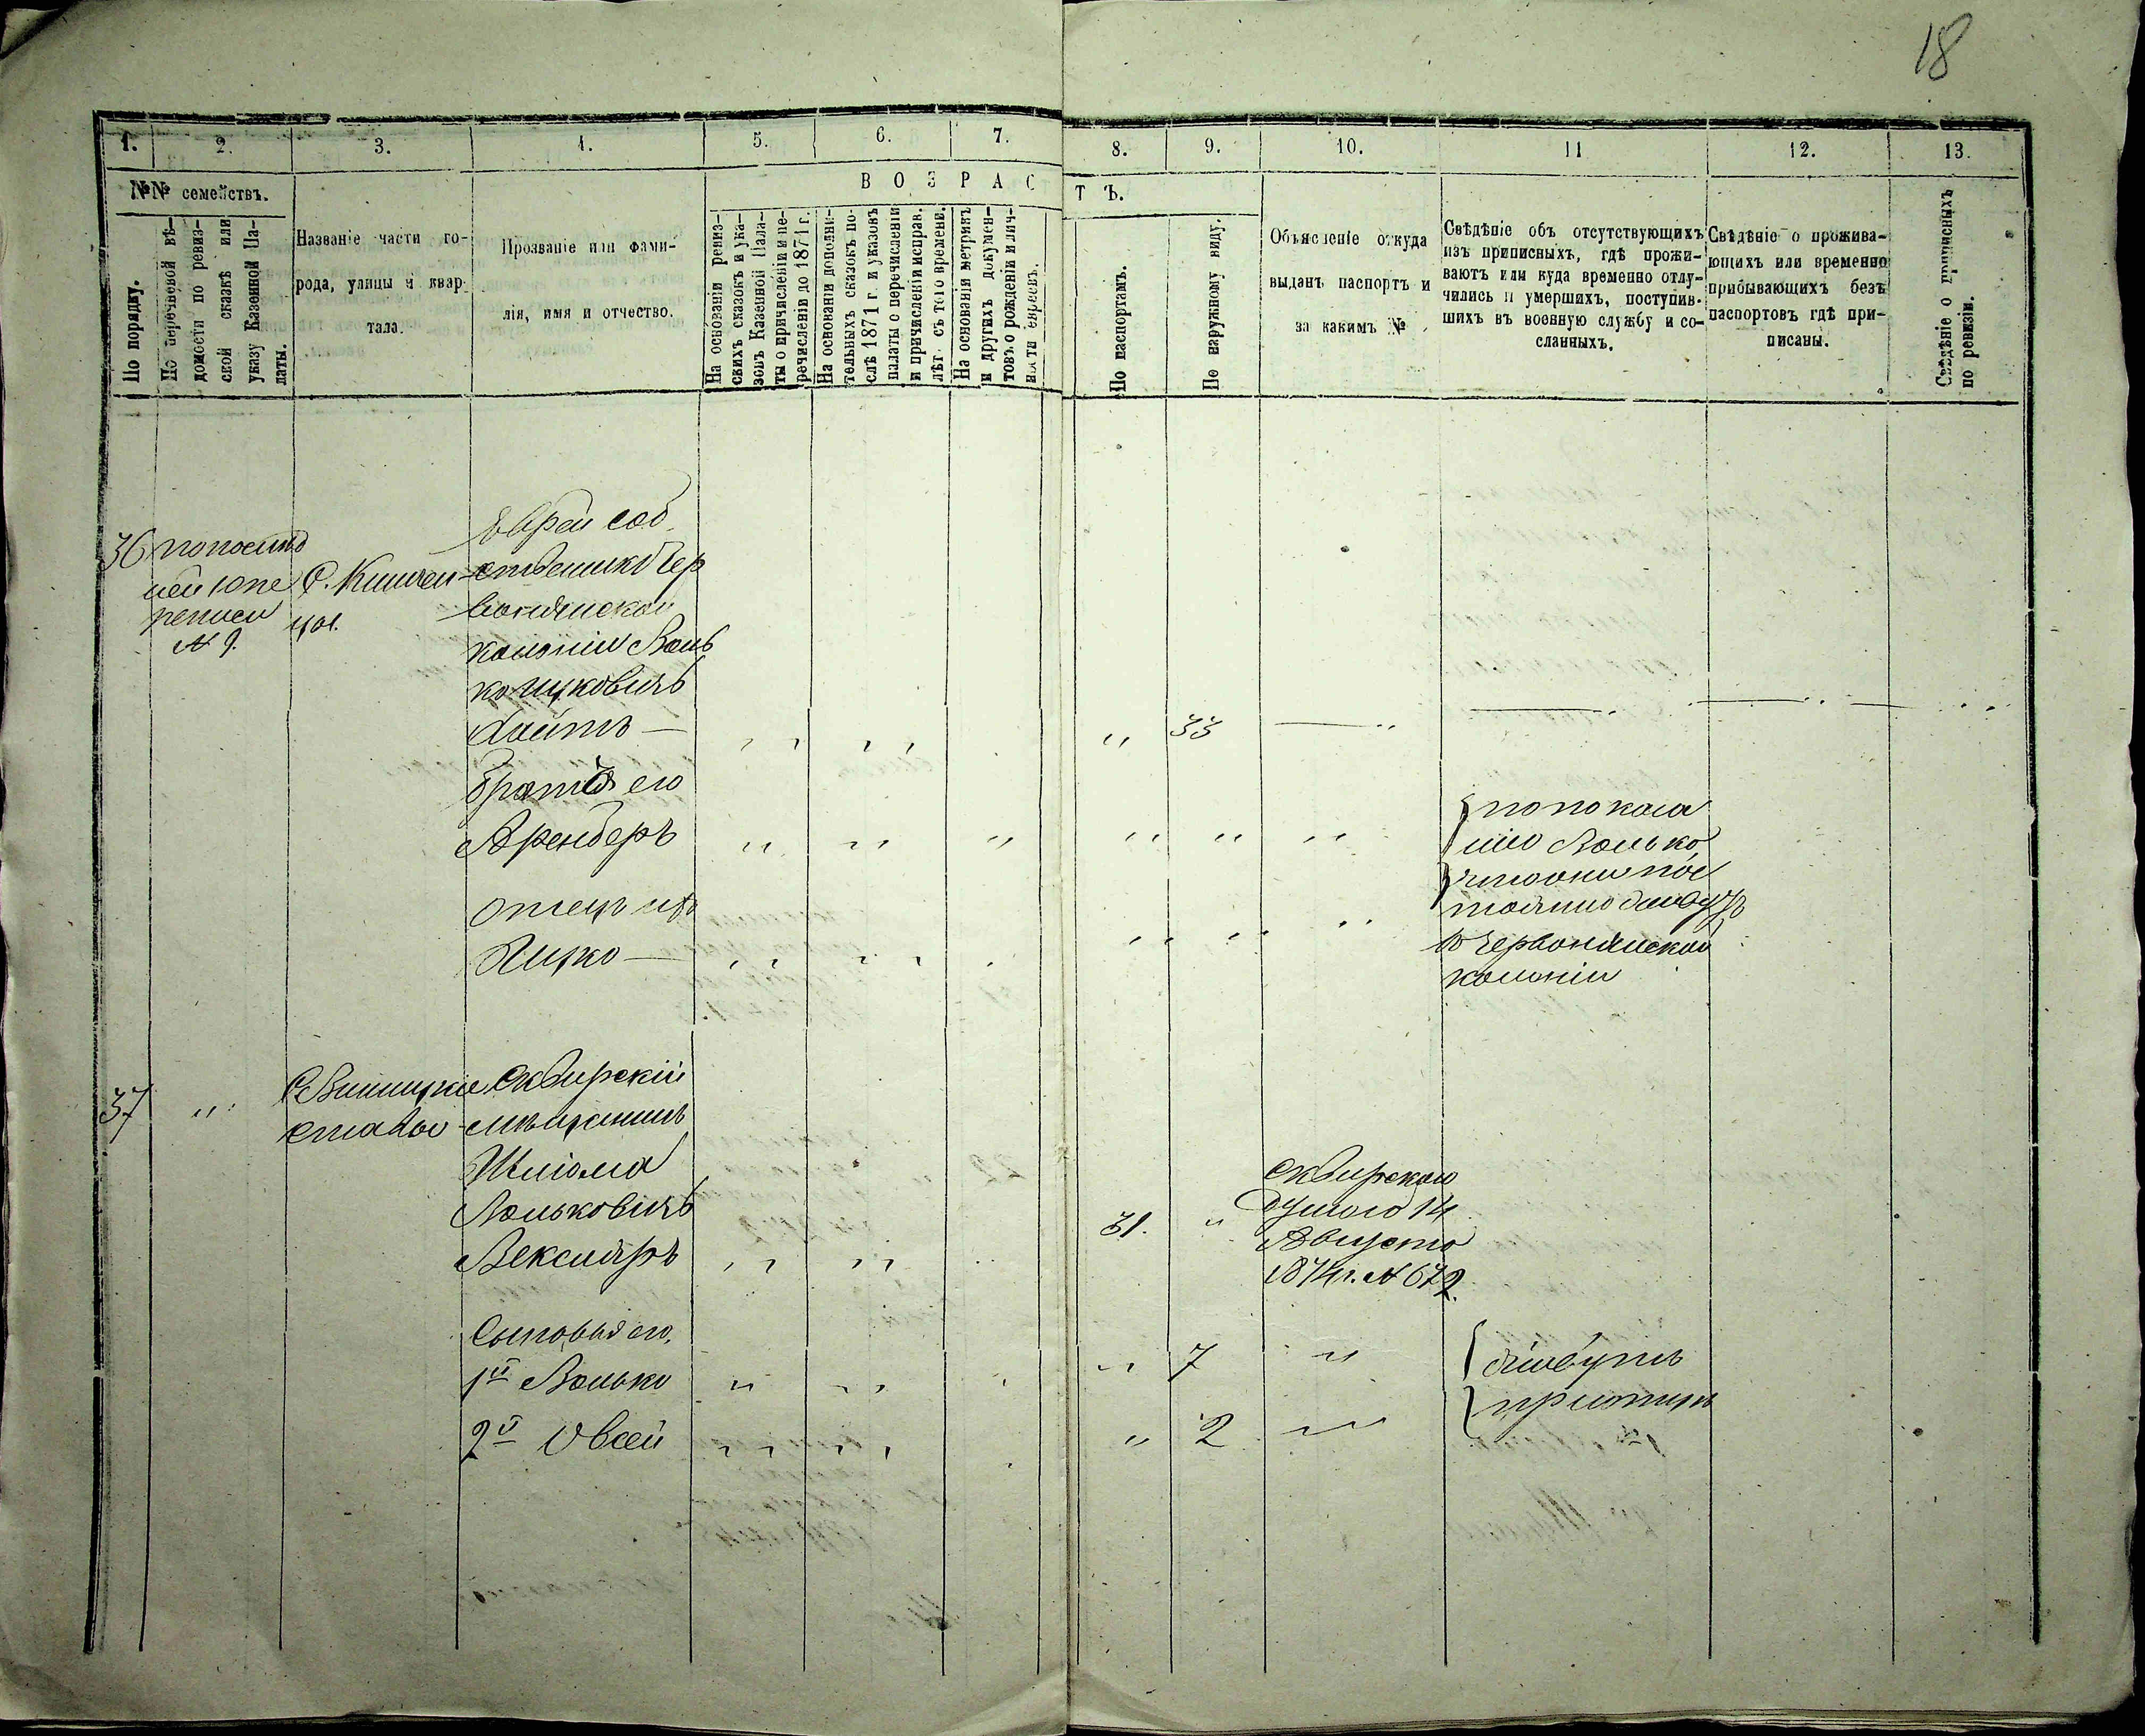 18
1. 2. 3. 4. 5. 6. 7. 8. 9. 10. 11 12. 13.
№№ семействъ.
По порядку.
По перечневой вѣ-
домости по ревиз-
ской сказкѣ или
указу Казенной Па-
латы.
Названіе части го-
рода, улицы и квар-
тала.
Прозваніе или фами-
лія, имя и отчество.
ВОЗРАСТЪ.
На основаніи ревиз-
скихъ сказокъ и ука-
зовъ Казенной Пала-
ты о причисленіи и пе-
речисленіи до 1871 г.
На основаніи дополни-
тельныхъ сказокъ по-
слѣ 1871 г. и указовъ
палаты о перечисленіи
и причисленіи и исправ.
лѣт. съ того времени.
На основаніи метрикъ
и других докумен-
товъ о рожденіи и лич-
ности евреевъ.
По паспортамъ.
По наружному виду.
Объясненіе откуда
выданъ паспортъ и
за какимъ №
Свѣдѣніе объ отсутствующихъ
изъ приписныхъ, гдѣ прожи-
ваютъ или куда временно отлу-
чились и умершихъ, поступив-
шихъ въ военную службу и со-
сланныхъ.
Свѣдѣніе о прожива-
ющихъ или временно
прибывающихъ безъ
паспортовъ гдѣ при-
писаны.
Свѣдѣніе о приписныхъ
по ревизіи.
36
по послѣд
ней 10 пе
реписи
№ 9.
С.
Еврей соб
ственникъ Чер
вонянской
колоніи Воль
ко Ицковичъ
" 33
братья его
отецъ ихъ
Ицко
по показа
нію Волько
что они пос
тоянно живутъ
въ Червонянской
колоніи
37 "
Сквирскій
мѣщанинъ
Шлiома
Вольковичъ
Векслеръ
31. "
Сквирскою
Думою 14
Августа
1874 г. № 672.
Сыновья его,
1й Волько
" 7 "
2й Овсей
" 2 "
живутъ
при отцѣ